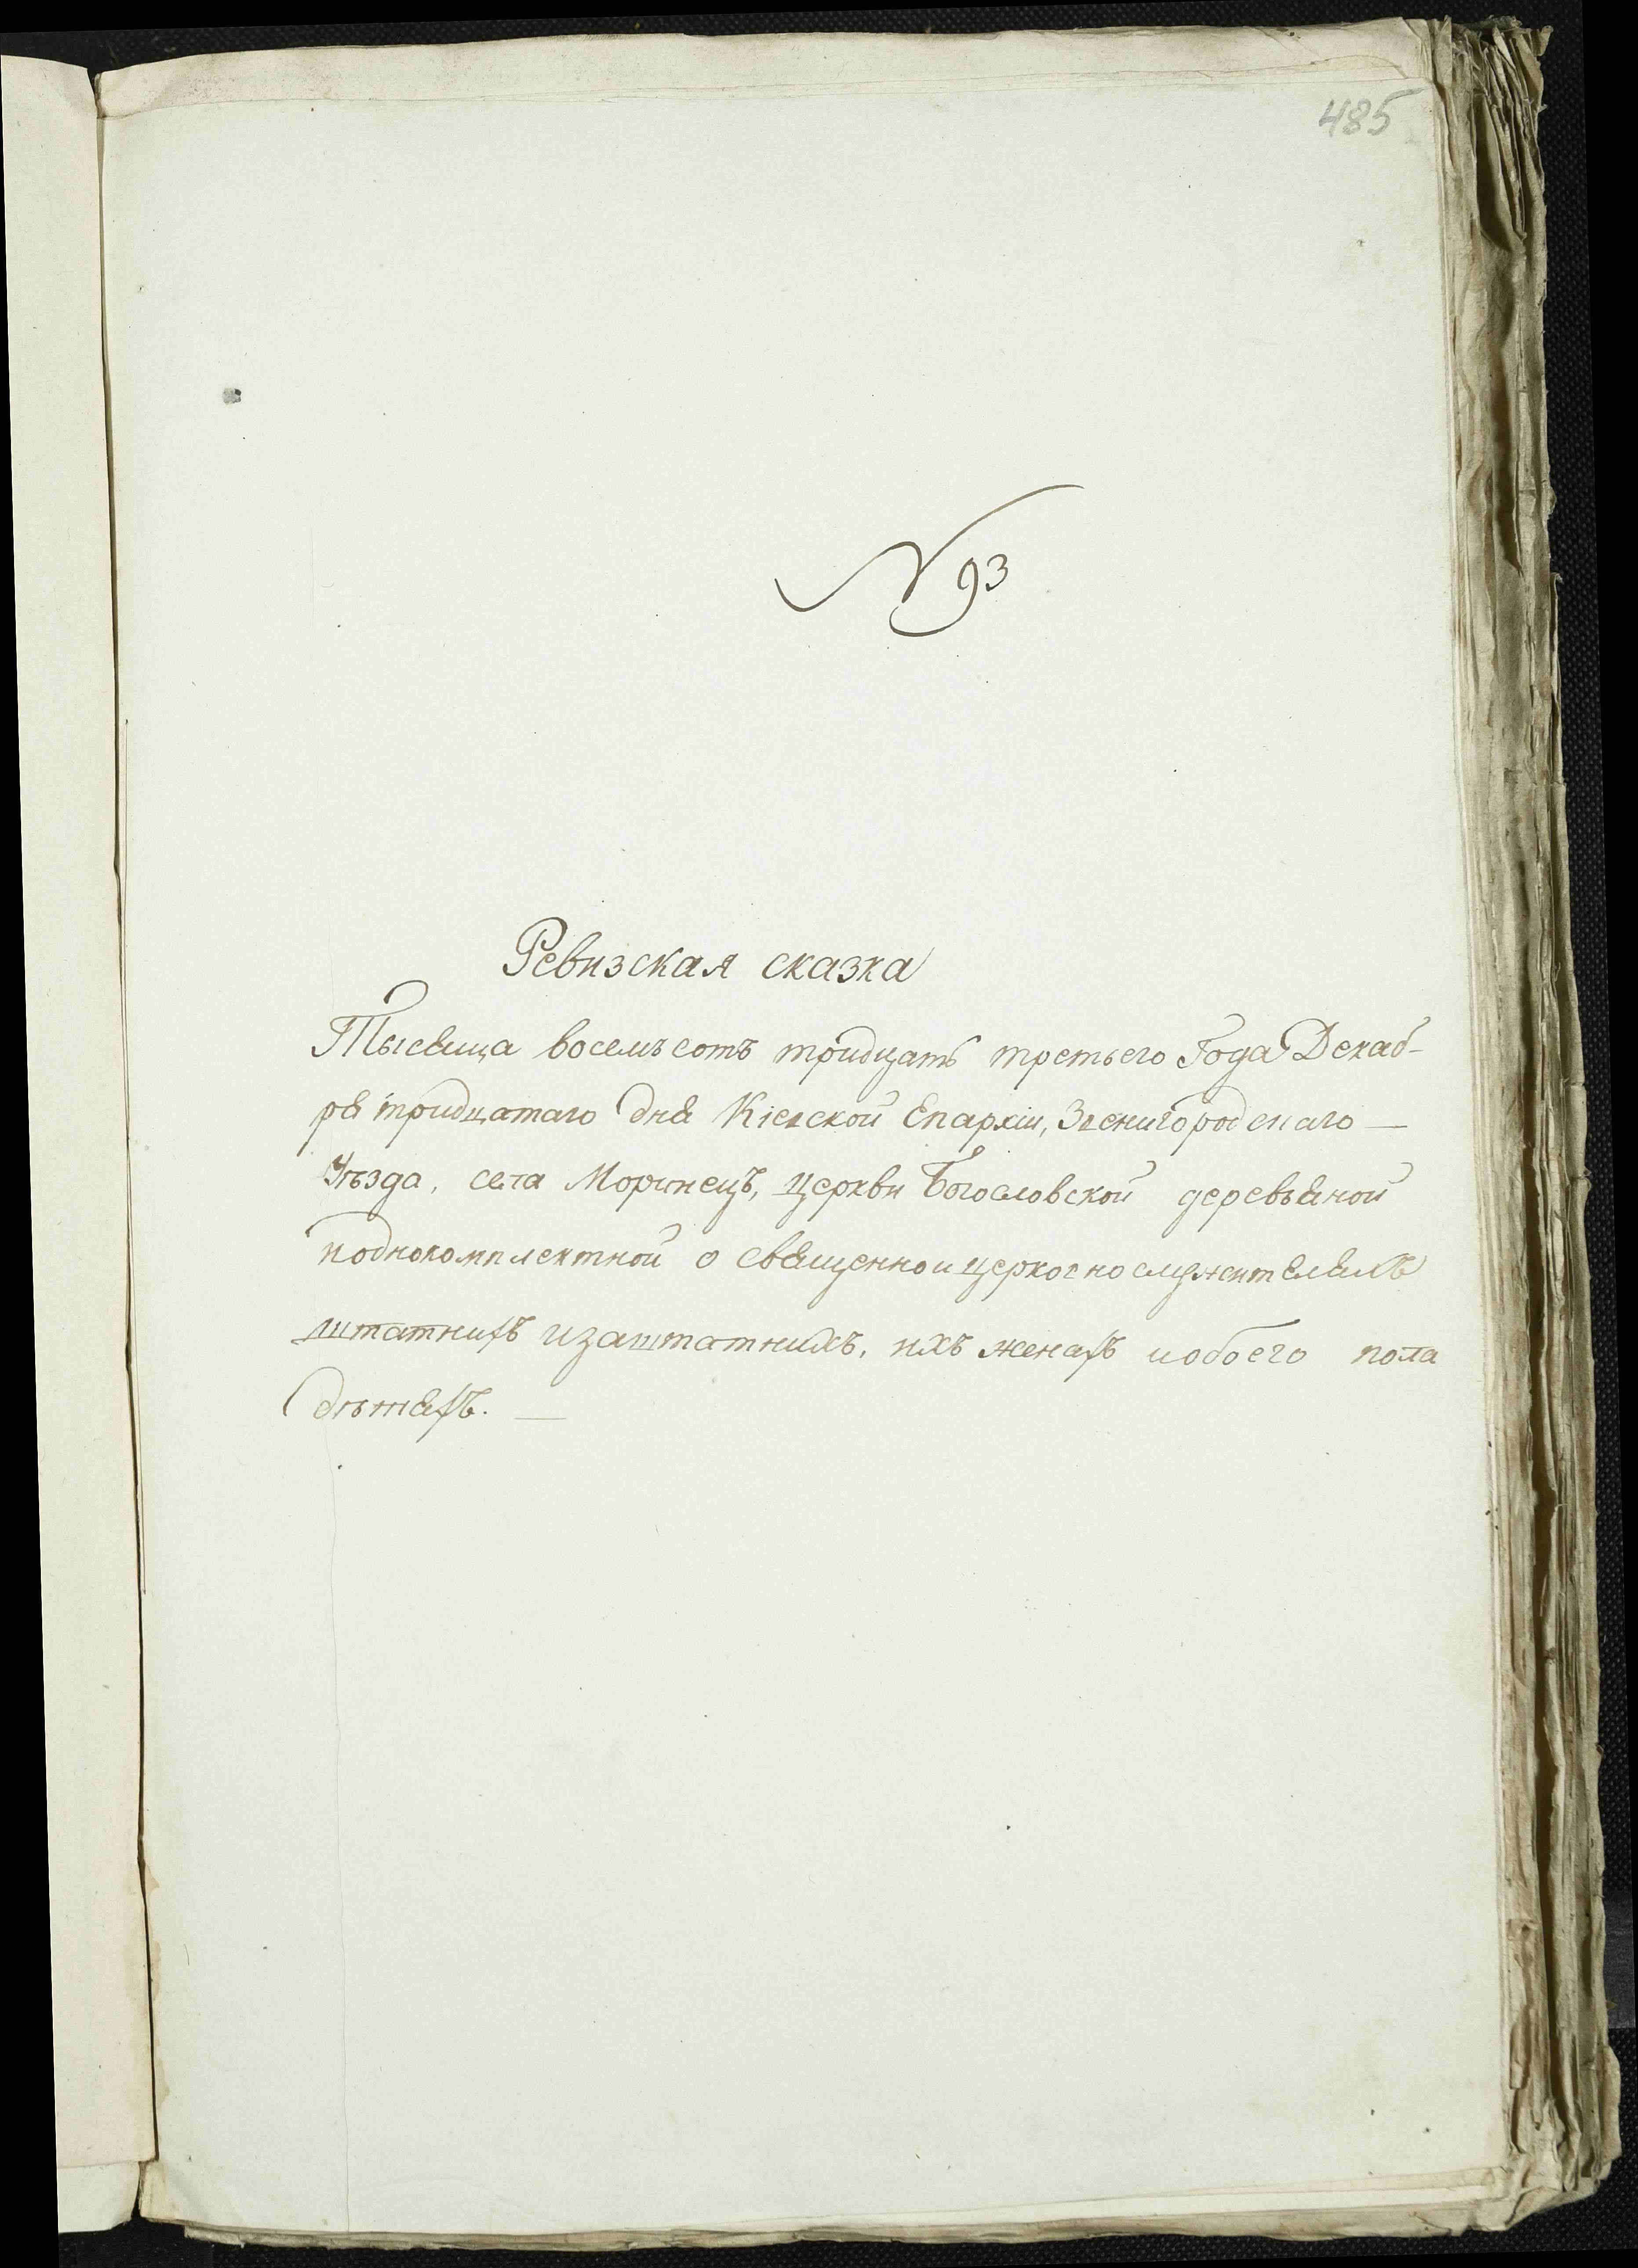 485
N 93
Ревизская сказка
Тысяща восемъсотъ тридцать третьего Года Декаб-
ря тридцатаго дня Кіевской Епархіи, Звенигородскаго —
Уѣзда, села Моринецъ, церкви Богословской деревяной
иоднокомплектной о священноицерковнослужителяхъ
штатнихъ изаштатнихъ, ихъ женахъ иобоего пола
дѣтяхъ. —